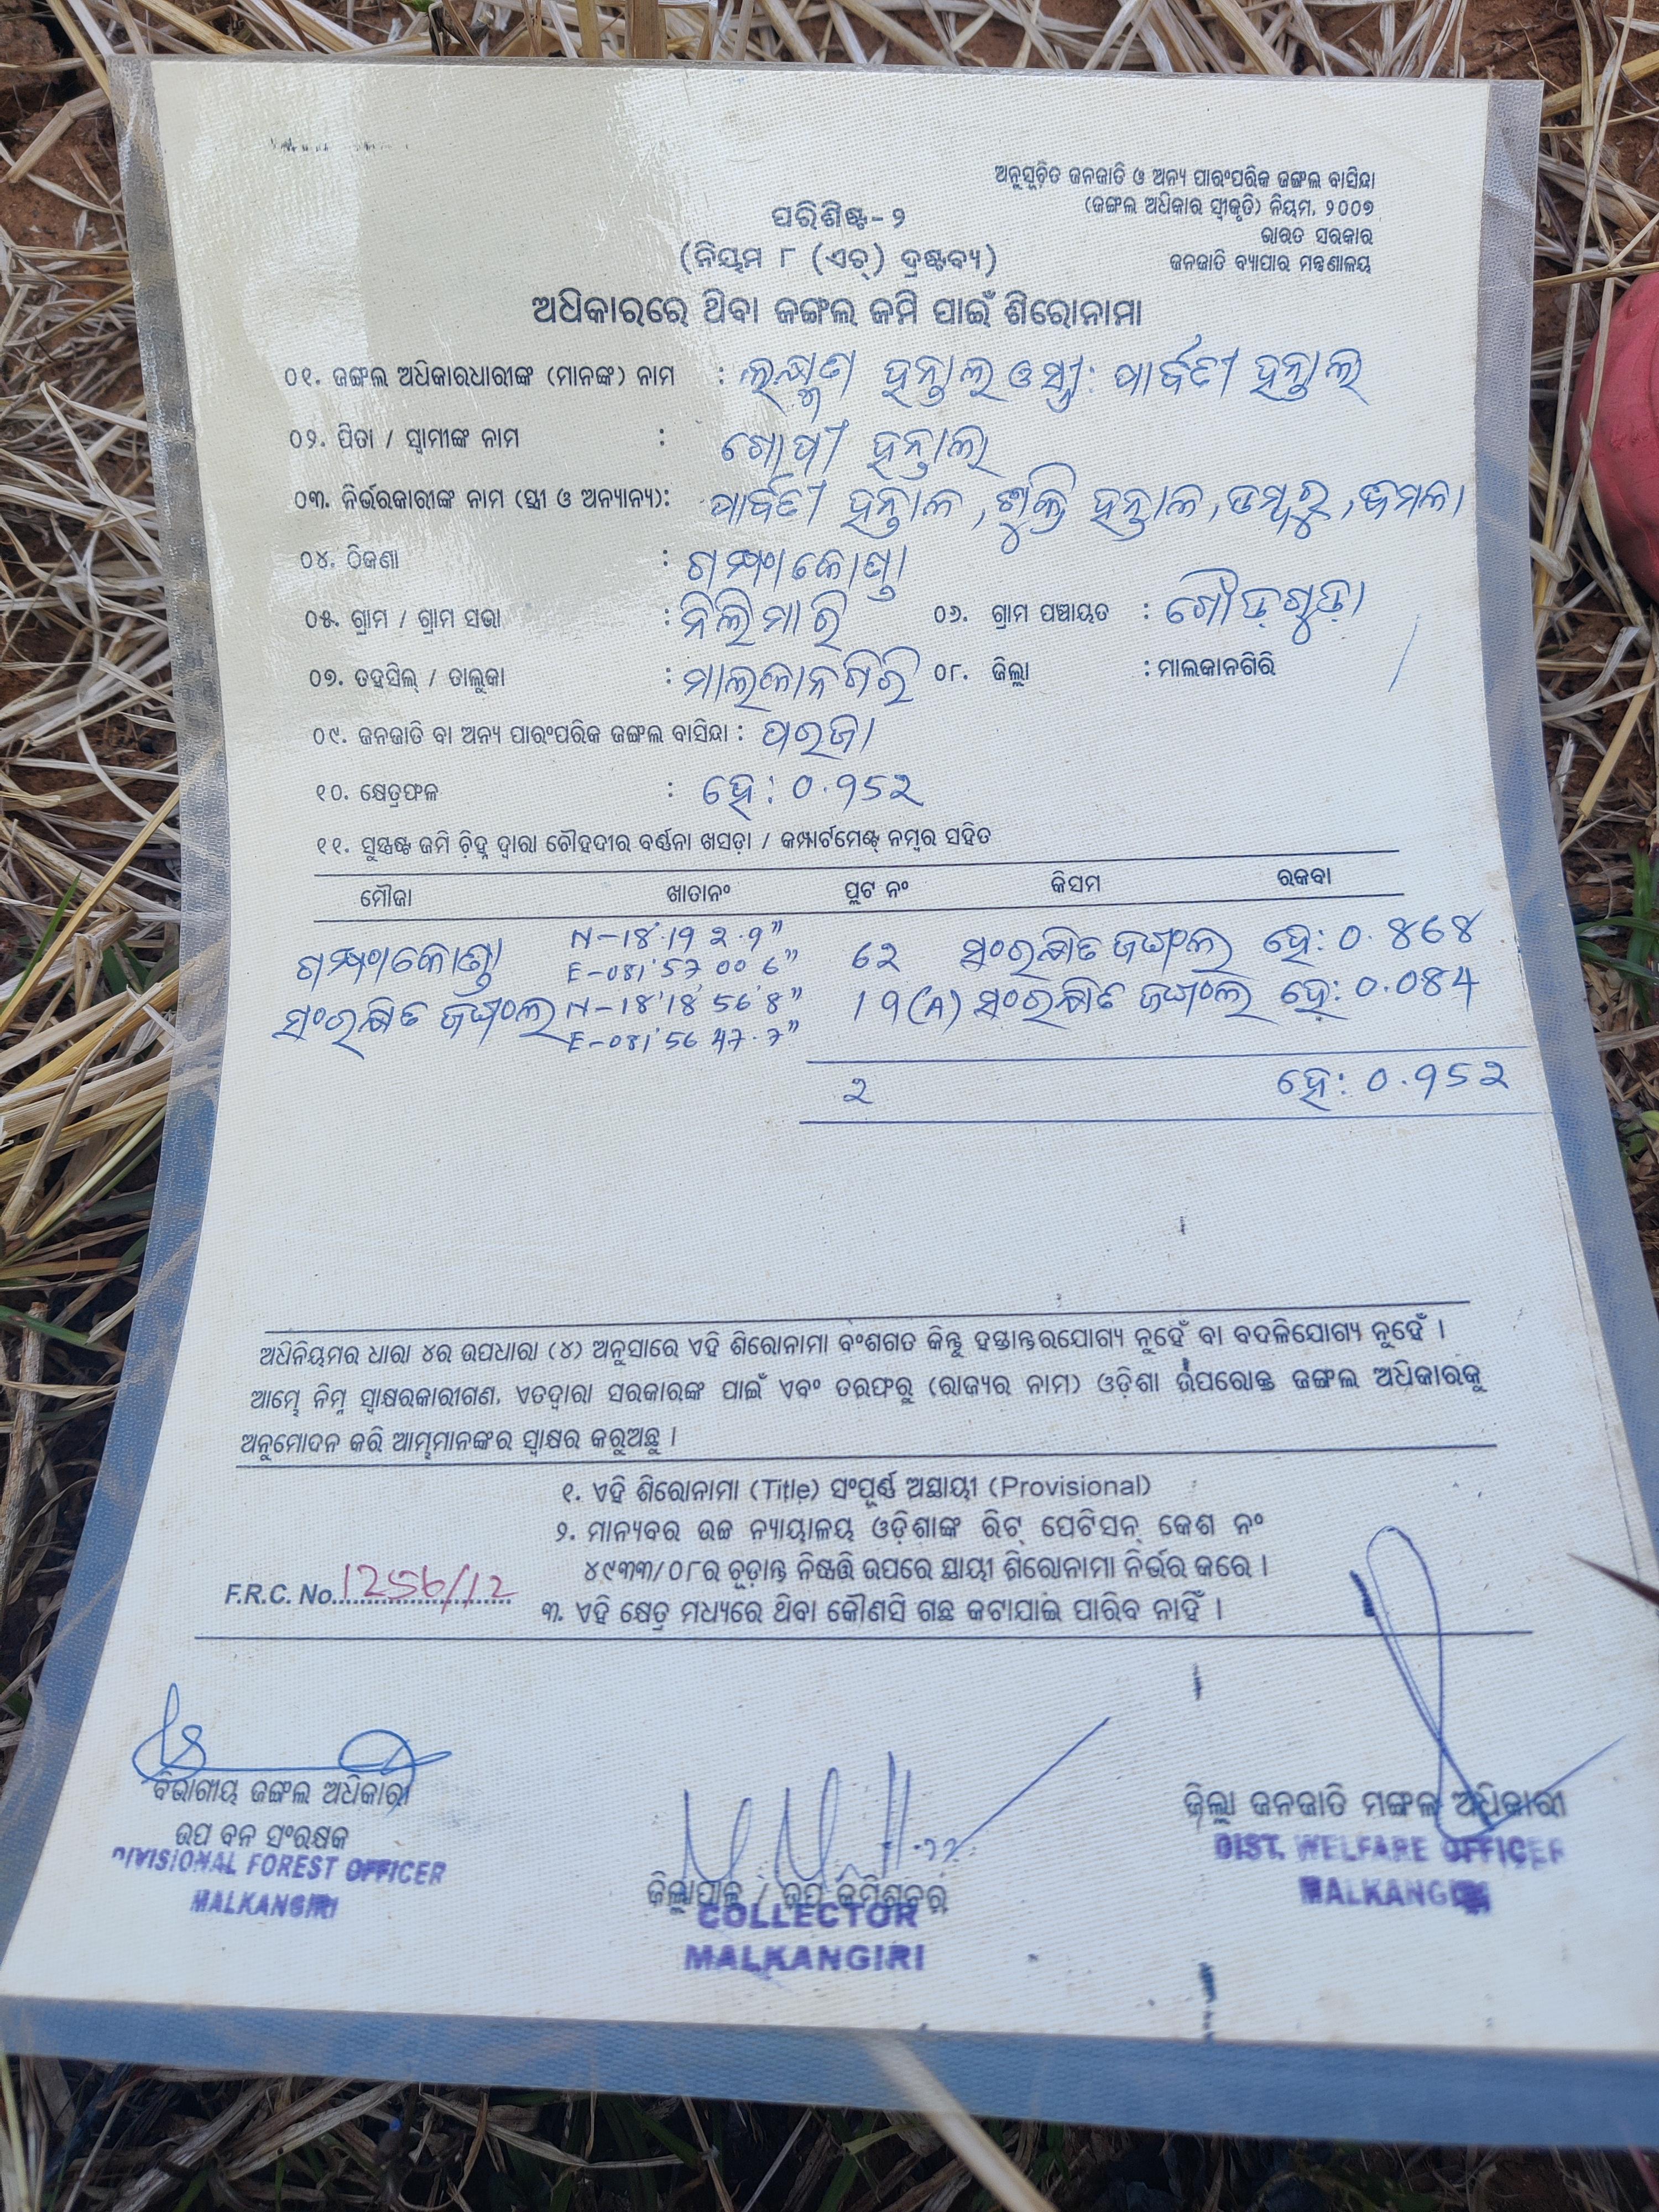 ଅନୁସୂଚିତ ଜନଜାତି ଓ ଅନ୍ୟ ପାରଂପରିକ ଜଙ୍ଗଲ ବାସିନ୍ଦା
(ଜଙ୍ଗଲ ଅଧିକାର ସ୍ୱୀକୃତି) ନିୟମ, ୨୦୦୭
ଭାରତ ସରକାର
ଜନଜାତି ବ୍ୟାପାର ମନ୍ତ୍ରଣାଳୟ
ପରିଶିଷ୍ଟ-୨
(ନିୟମ ୮ (ଏଚ୍) ଦ୍ରଷ୍ଟବ୍ୟ)
ଅଧିକାରରେ ଥିବା ଜଙ୍ଗଲ ଜମି ପାଇଁ ଶିରୋନାମା
୦୧. ଜଙ୍ଗଲ ଅଧିକାରଧାରୀଙ୍କ (ମାନଙ୍କ) ନାମ : ଲକ୍ଷ୍ମଣ ହନ୍ତାଲ ଓ ସ୍ତ୍ରୀ: ପାର୍ବତୀ ହନ୍ତାଲ
୦୨. ପିତା / ସ୍ୱାମୀଙ୍କ ନାମ : ଗୋପୀ ହନ୍ତାଲ
୦୩. ନିର୍ଭରକାରୀଙ୍କ ନାମ (ସ୍ତ୍ରୀ ଓ ଅନ୍ୟାନ୍ୟ): ପାର୍ବତୀ ହନ୍ତାଳ, ଶୁକ୍ରି ହନ୍ତାଳ, ଡମ୍ବରୁ,
୦୪. ଠିକଣା : ଗମ୍ପାକୋଣ୍ଡା
୦୫. ଗ୍ରାମ / ଗ୍ରାମ ସଭା : ନିଲିମାରି ୦୬. ଗ୍ରାମ ପଞ୍ଚାୟତ : ଗୌଡ଼ଗୁଡ଼ା
୦୭. ତହସିଲ୍ / ତାଲୁକା : ମାଲକାନଗିରି ୦୮. ଜିଲ୍ଲା : ମାଲକାନଗିରି
୦୯. ଜନଜାତି ବା ଅନ୍ୟ ପାରଂପରିକ ଜଙ୍ଗଲ ବାସିନ୍ଦା : ପରଜା
୧୦. କ୍ଷେତ୍ରଫଳ : ହେ: ୦.୨୫୨
୧୧. ସୁସ୍ପଷ୍ଟ ଜମି ଚିହ୍ନ ଦ୍ୱାରା ଚୌହଦୀର ବର୍ଣ୍ଣନା ଖସଡ଼ା / କମ୍ପାର୍ଟମେଣ୍ଟ୍ ନମ୍ବର ସହିତ
ମୌଜା ଖାତାନଂ ପ୍ଲଟ ନଂ କିସମ ରକବା
ଗମ୍ପାକୋଣ୍ଡା
ସଂରକ୍ଷିତ ଜଙ୍ଗଲ N-18'18'56'8" ସଂରକ୍ଷିତ ଜଙ୍ଗଲ
E-081'56 47.7"
୨
ଅଧିନିୟମର ଧାରା ୪ର ଉପଧାରା (୪) ଅନୁସାରେ ଏହି ଶିରୋନାମା ବଂଶଗତ କିନ୍ତୁ ହସ୍ତାନ୍ତରଯୋଗ୍ୟ ନୁହେଁ ବା ବଦଳିଯୋଗ୍ୟ ନୁହେଁ ।
ଆମ୍ଭେ ନିମ୍ନ ସ୍ୱାକ୍ଷରକାରୀଗଣ, ଏତଦ୍ୱାରା ସରକାରଙ୍କ ପାଇଁ ଏବଂ ତରଫରୁ (ରାଜ୍ୟର ନାମ) ଓଡ଼ିଶା ଉପରୋକ୍ତ ଜଙ୍ଗଲ ଅଧିକାରକୁ
ଅନୁମୋଦନ କରି ଆମ୍ଭମାନଙ୍କର ସ୍ୱାକ୍ଷର କରୁଅଛୁ ।
୧. ଏହି ଶିରୋନାମା (Title) ସଂପୂର୍ଣ୍ଣ ଅସ୍ଥାୟୀ (Provisional)
୨. ମାନ୍ୟବର ଉଚ୍ଚ ନ୍ୟାୟାଳୟ ଓଡ଼ିଶାଙ୍କ ରିଟ୍ ପେଟିସନ୍ କେଶ ନଂ
୪୯୩୩/୦୮ର ଚୂଡ଼ାନ୍ତ ନିଷ୍ପତ୍ତି ଉପରେ ସ୍ଥାୟୀ ଶିରୋନାମା ନିର୍ଭର କରେ ।
F.R.C. No. 1256/12
୩. ଏହି କ୍ଷେତ୍ର ମଧ୍ୟରେ ଥିବା କୌଣସି ଗଛ କଟାଯାଇ ପାରିବ ନାହିଁ ।
ବିଭାଗୀୟ ଜଙ୍ଗଲ ଅଧିକାରୀ
ଉପ ବନ ସଂରକ୍ଷକ
DIVISIONAL FOREST OFFICER
MALKANGIRI
ଜିଲ୍ଲାପାଳ / ଉପ କମିଶନର
COLLECTOR
MALKANGIRI
ଜିଲ୍ଲା ଜନଜାତି ମଙ୍ଗଳ ଅଧିକାରୀ
DIST. WELFARE OFFICER
MALKANGIRI